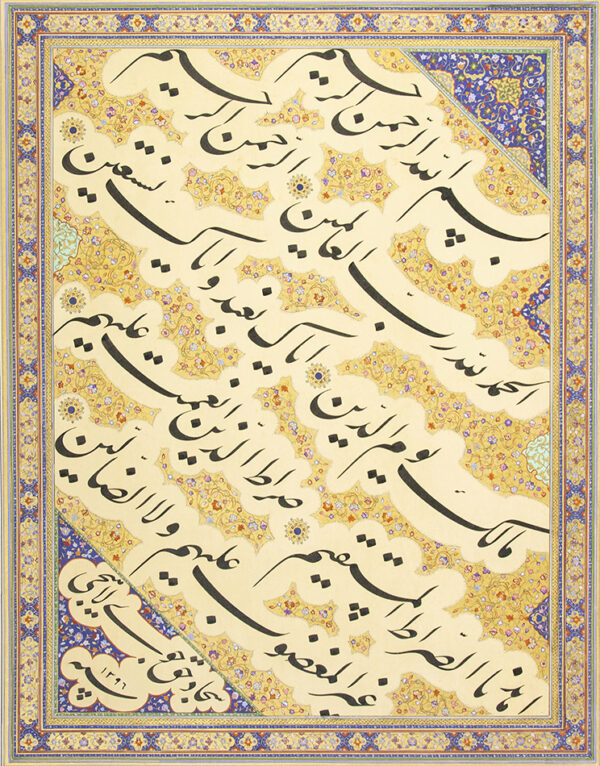 بسم الله الرحمن الرحیم
الحمد لله رب العالمین الرحمن الرحیم
مالک یوم الدین ایاک نعبد و ایاک نستعین
اهدنا الصراط المستقیم صراط الذین انعمت علیهم
غیر المغضوب علیهم ولا الضالین
سنه ۱۳۹۶